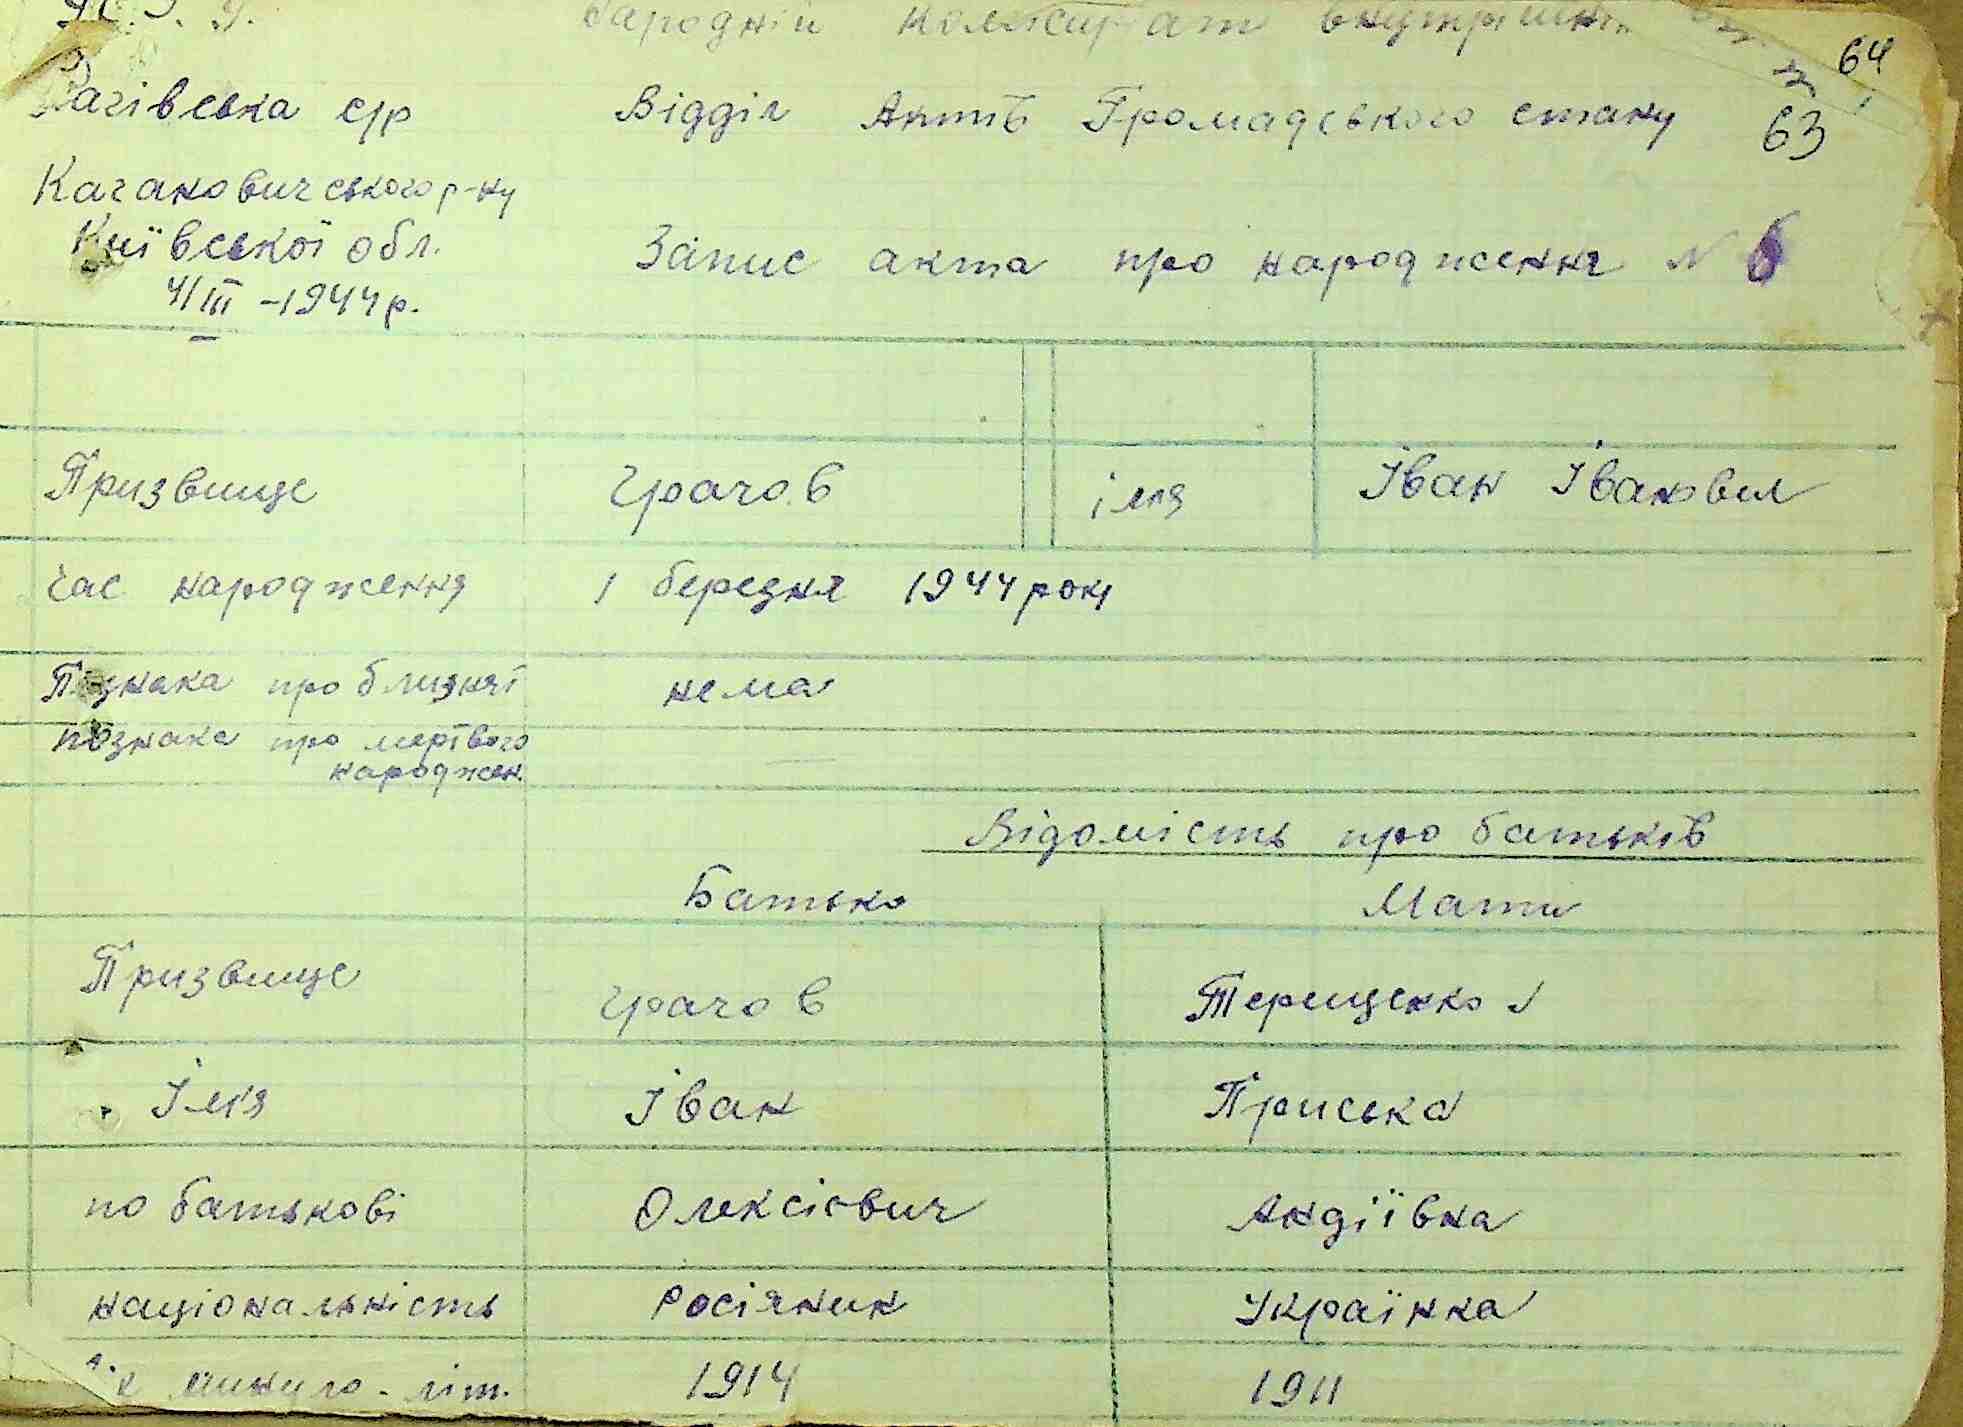 Народній Комісаріат внутрішніх
64
63
Рагівська с/р Відділ Актів Громадського стану
Кагановичського р-ну
Київської обл.
4/III -1944 р. Запис акта про народження N 6
Призвище Грачов імя Іван Іванович
Час народження 1 березня 1944 року
Познака про близнят нема
познака про мертвого
народжен. —
Відомість про батьків
Батько Мати
Призвище Грачов Терищенко
Ім'я Іван Приська
по батькові Олексієвич Андіївна
національність Росіяник Українка
минуло літ. 1914 1911